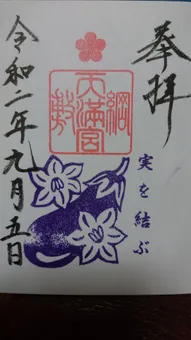 奉拝
実を結ぶ
綱敷天満宮
令和二年九月五日